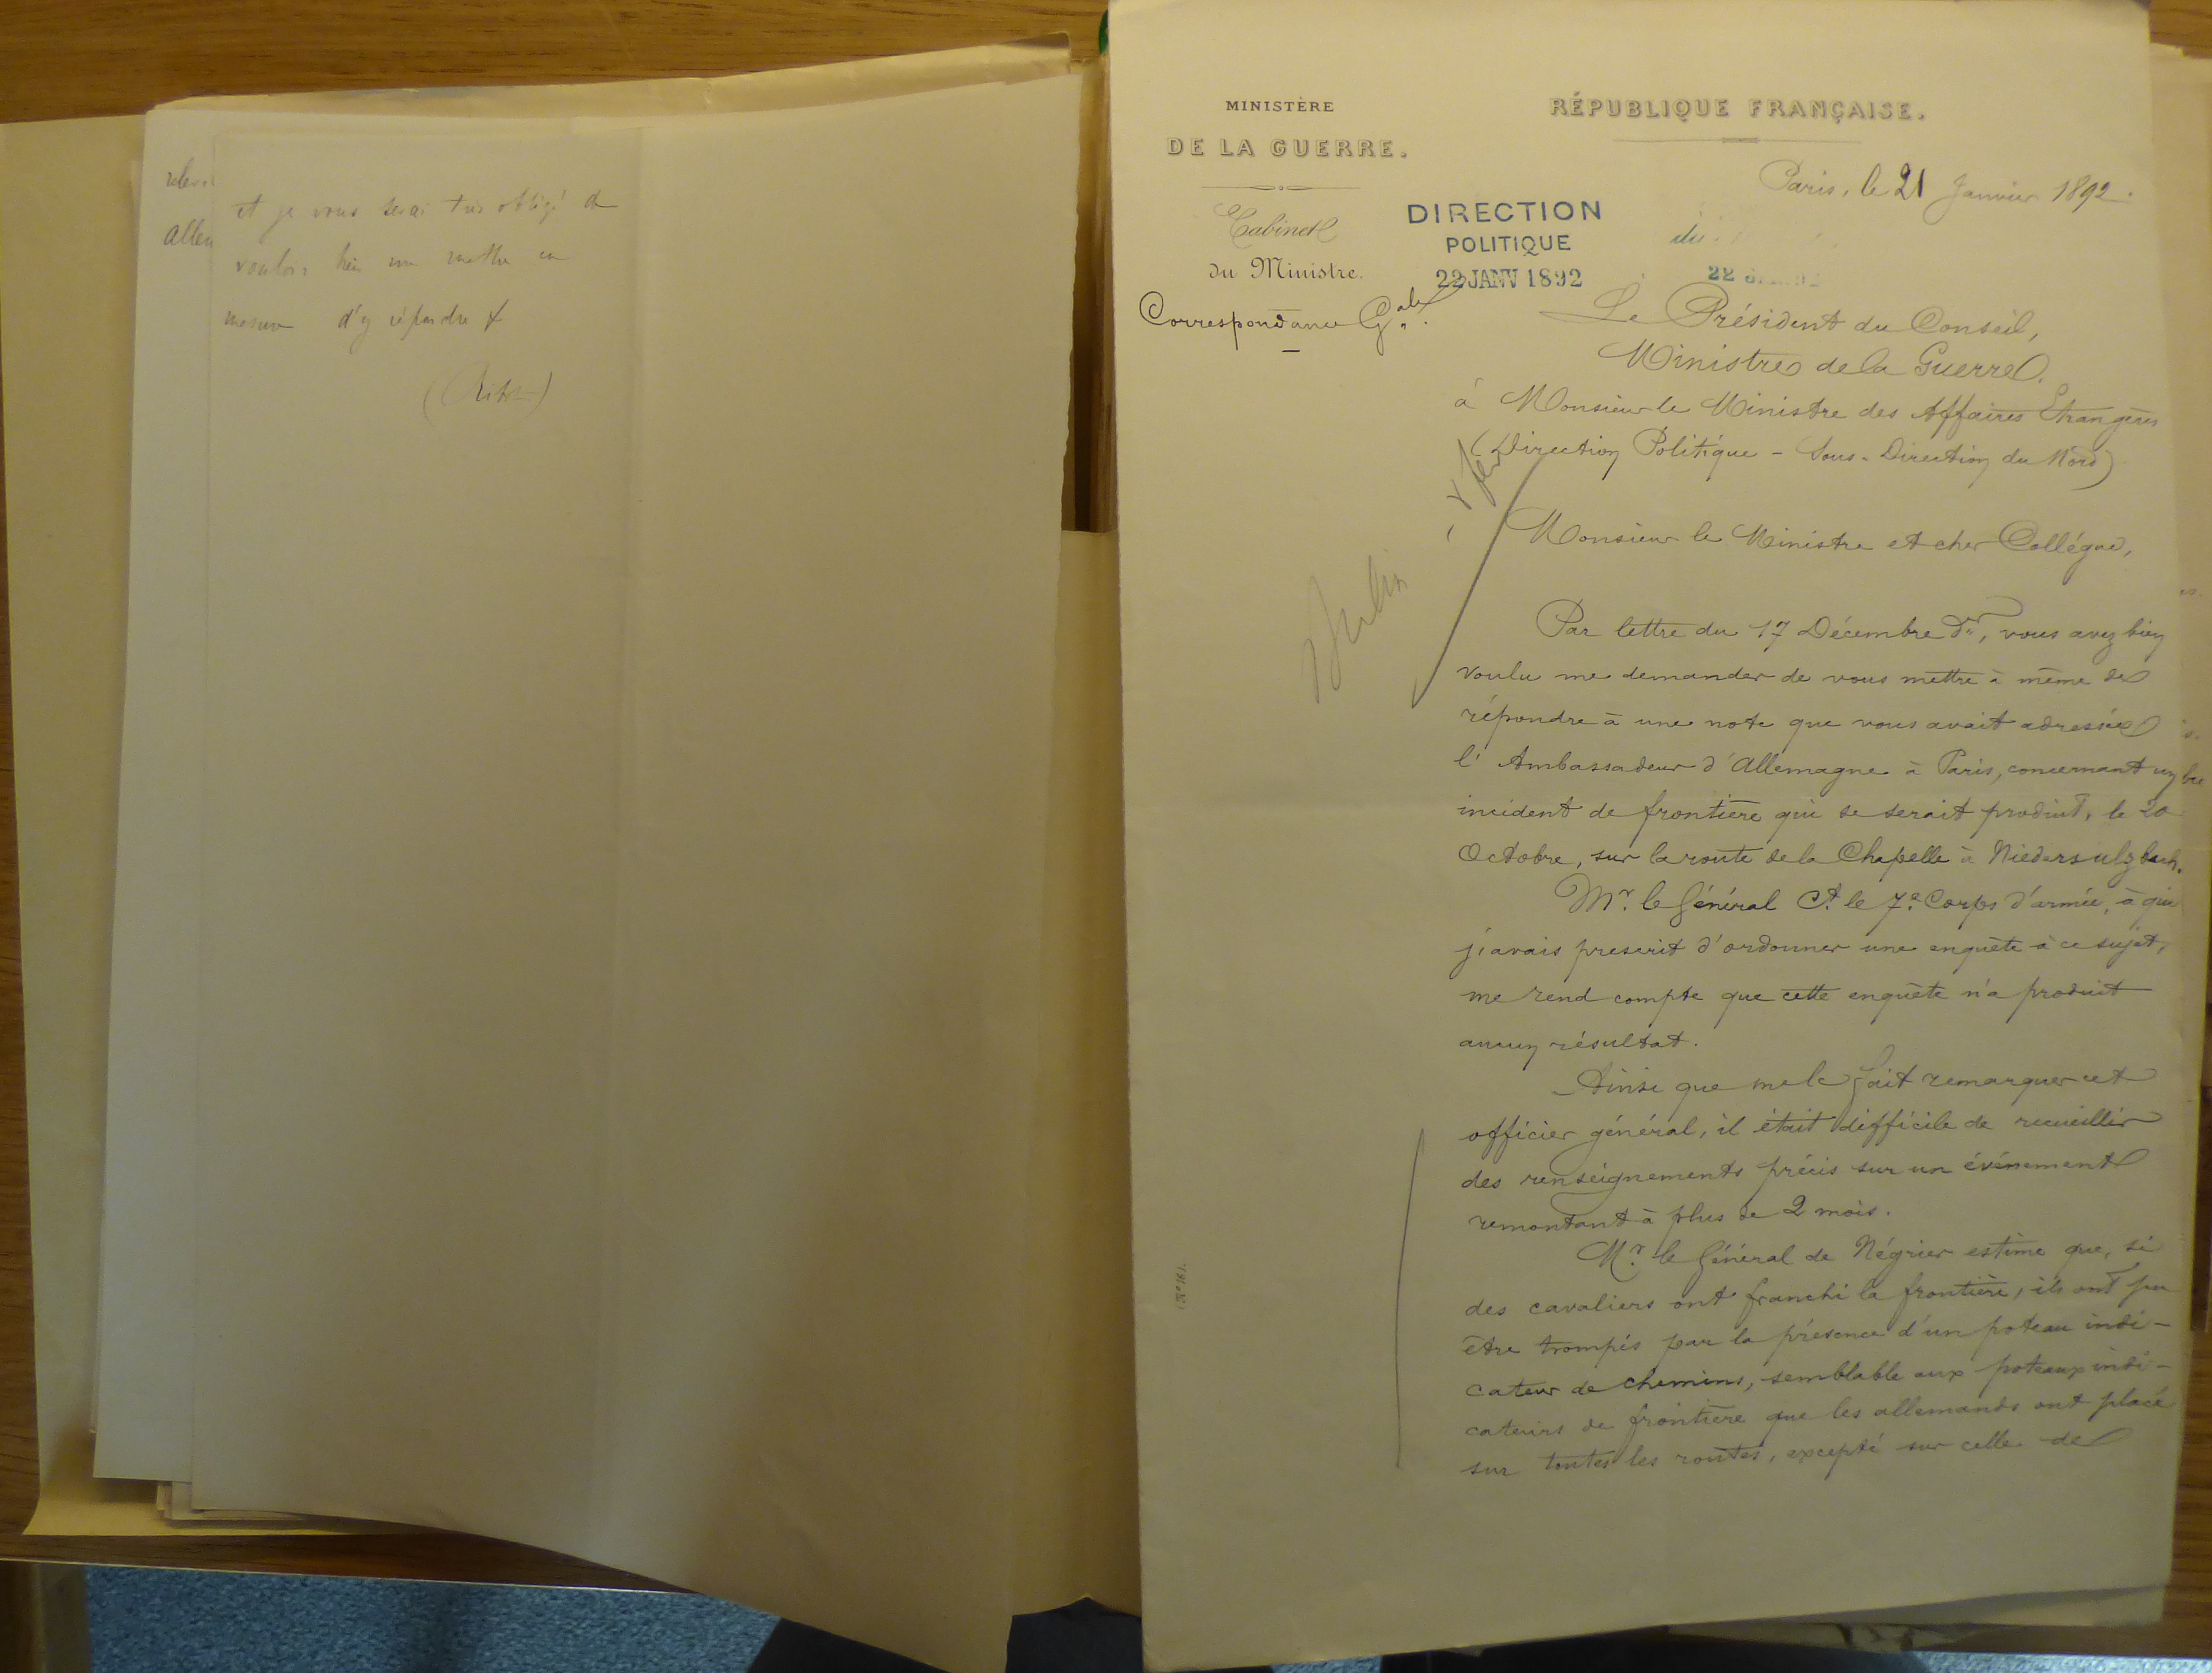 et je vous serai très obligé de
vouloir bien me mettre en
mesure d'y répondre
(Ribot)
MINISTÈRE
DE LA GUERRE.
Cabinet
du Ministre.
Correspondance Gale.
DIRECTION
POLITIQUE
22 JANV 1892
RÉPUBLIQUE FRANÇAISE.
Paris, le 21 Janvier 1892.
du
22
Le Président du Conseil,
Ministre de la Guerre.
à Monsieur le Ministre des Affaires Etrangères
(Direction Politique - Sous-Direction du Nord)
Berlin
Monsieur le Ministre et cher Collègue,
Par lettre du 17 Décembre dr, vous avez bien
voulu me demander de vous mettre à même de
répondre à une note que vous avait adressée
l'Ambassadeur d'Allemagne à Paris, concernant un
incident de frontière qui se serait produit, le 20
Octobre, sur la route de la Chapelle à Niedersulzbach.
Mr. le Général Ct. le 7e. Corps d'armée, à qui
j'avais prescrit d'ordonner une enquête à ce sujet,
me rend compte que cette enquête n'a produit
aucun résultat.
Ainsi que me le fait remarquer cet
officier général, il était difficile de recueillir
des renseignements précis sur un événement
remontant à plus de 2 mois.
Mr. le Général de Négrier estime que, si
des cavaliers ont franchi la frontière, ils ont pu
être trompés par la présence d'un poteau indi-
cateur de chemins, semblable aux poteaux indi-
cateurs de frontière que les allemands ont placé
sur toutes les routes, excepté sur celle de